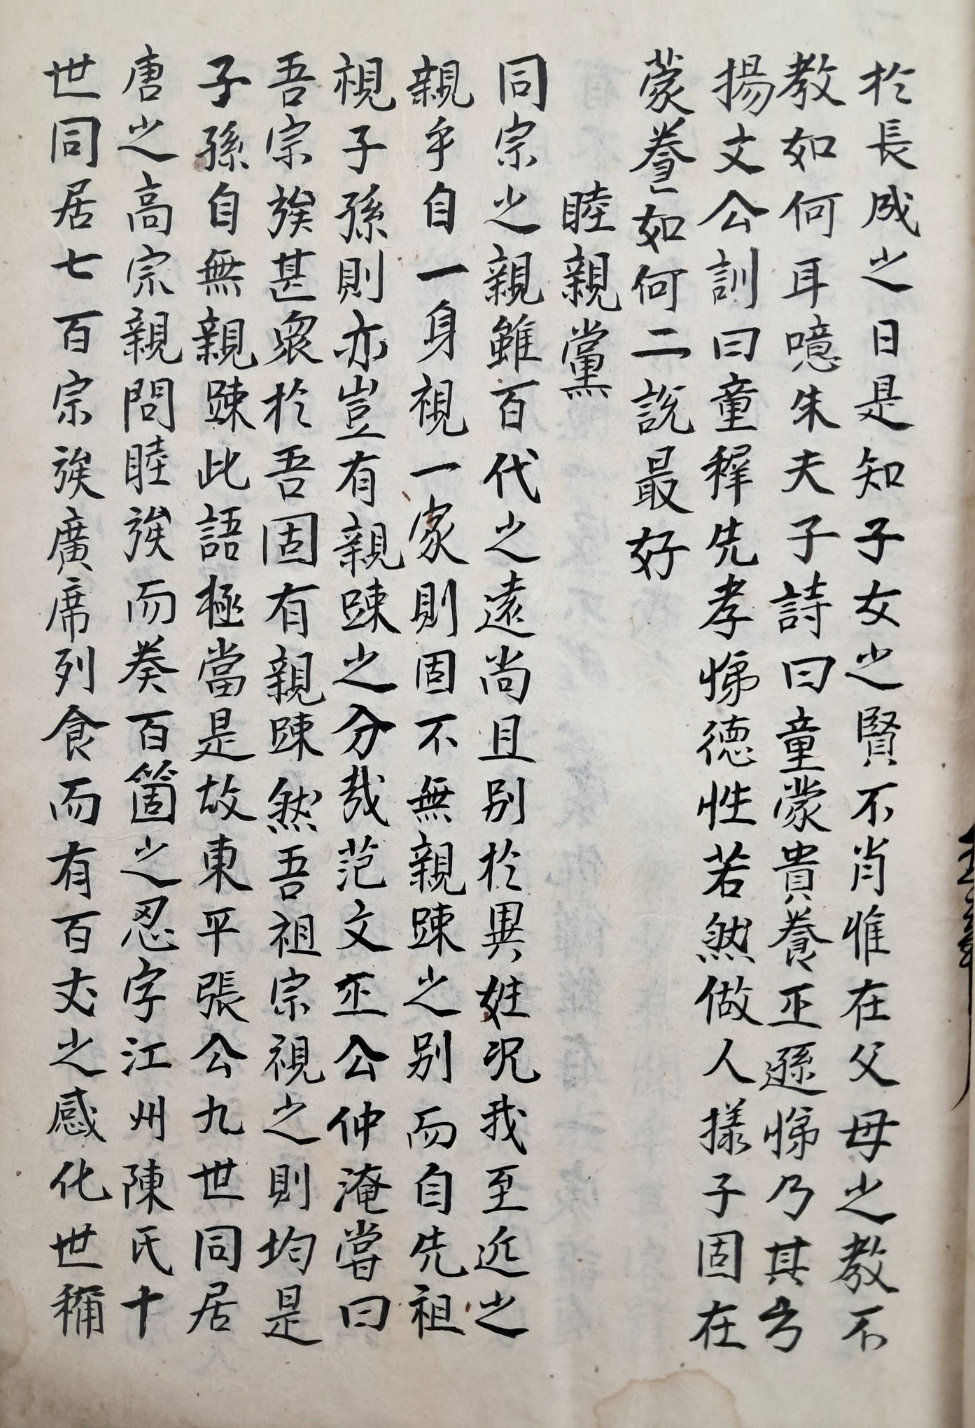 於長成之日是知子女之賢不肖惟在父母之教不
教如何耳噫朱夫子詩曰童蒙貴養正遜悌乃其方
揚文公訓曰童穉先孝悌德性若然做人㨾子固在
蒙養如何二說最好
睦親黨
同宗之親雖百代之遠尚且別於異姓况我至近之
親乎自一身視一家則固不無親踈之別而自先祖
視子孫則亦豈有親踈之分哉范文正公仲淹嘗曰
吾宗族甚衆於吾固有親踈然吾祖宗視之則均是
子孫自無親踈此語極當是故東平張公九世同居
唐之高宗親問睦族而奏百箇之忍字江州陳氏十
世同居七百宗族廣席列食而有百犬之感化世稱